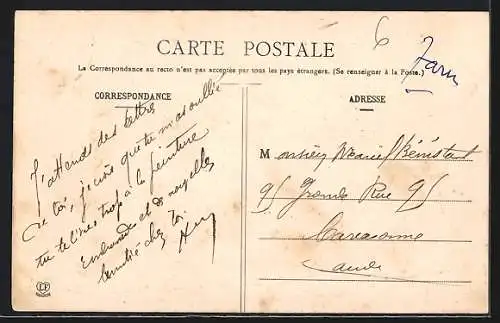 6 Tarn
CARTE POSTALE
La Correspondance au recto n'est pas acceptée par tous les pays étrangers. (Se renseigner à la Poste.)
CORRESPONDANCE
J'attends des lettres
de toi, je crois que tu m'as oublié
tu te l'mes trop à la peinture
Embrasses et de nouvelles
chez toi.
ADRESSE
Monsieur Marius Bénistant
95 Grande Rue 95
Carcassonne
Aude